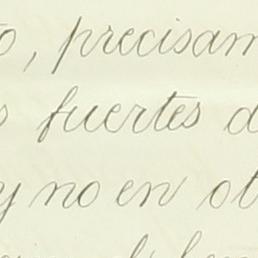 o, precisam
s fuertes d
y no en ot